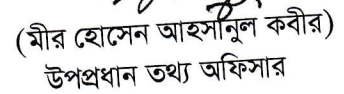 (মীর হোসেন আহসানুল কবীর)
উপপ্রধান তথ্য অফিসার